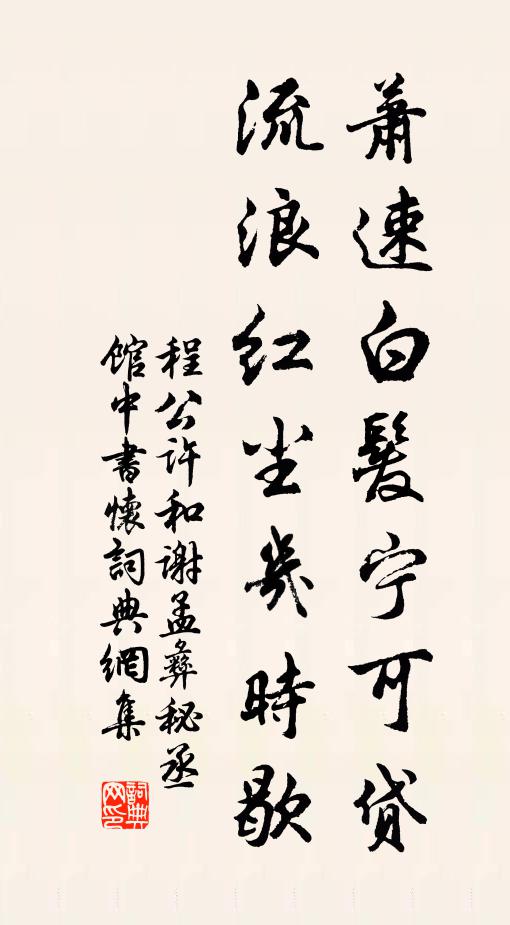 蕭速白髮宁可貸
流浪红尘幾時歇
程公许和谢孟彝秘丞
館中書懷詞典網集
詞典
网印